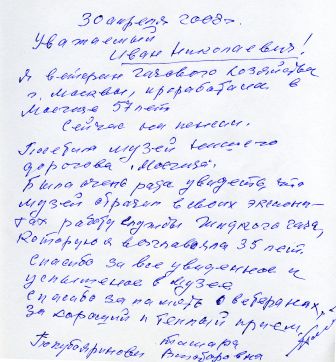 30 апреля 2008г.
Уважаемый
Иван Николаевич!
Я ветеран газового хозяйства
г. Москвы, проработала в
Мосгазе 57 лет
Сейчас на пенсии.
Посетила музей нашего
дорогова Мосгаза.
Была очень рада увидеть, что
музей отразил в своих экспона-
тах работу службы жидкого газа,
которую я возглавляла 35 лет.
Спасибо за все увиденное и
услышанное в музее
Спасибо за память о ветеранах,
за хороший и теплый прием.
Тамара
Викторовна